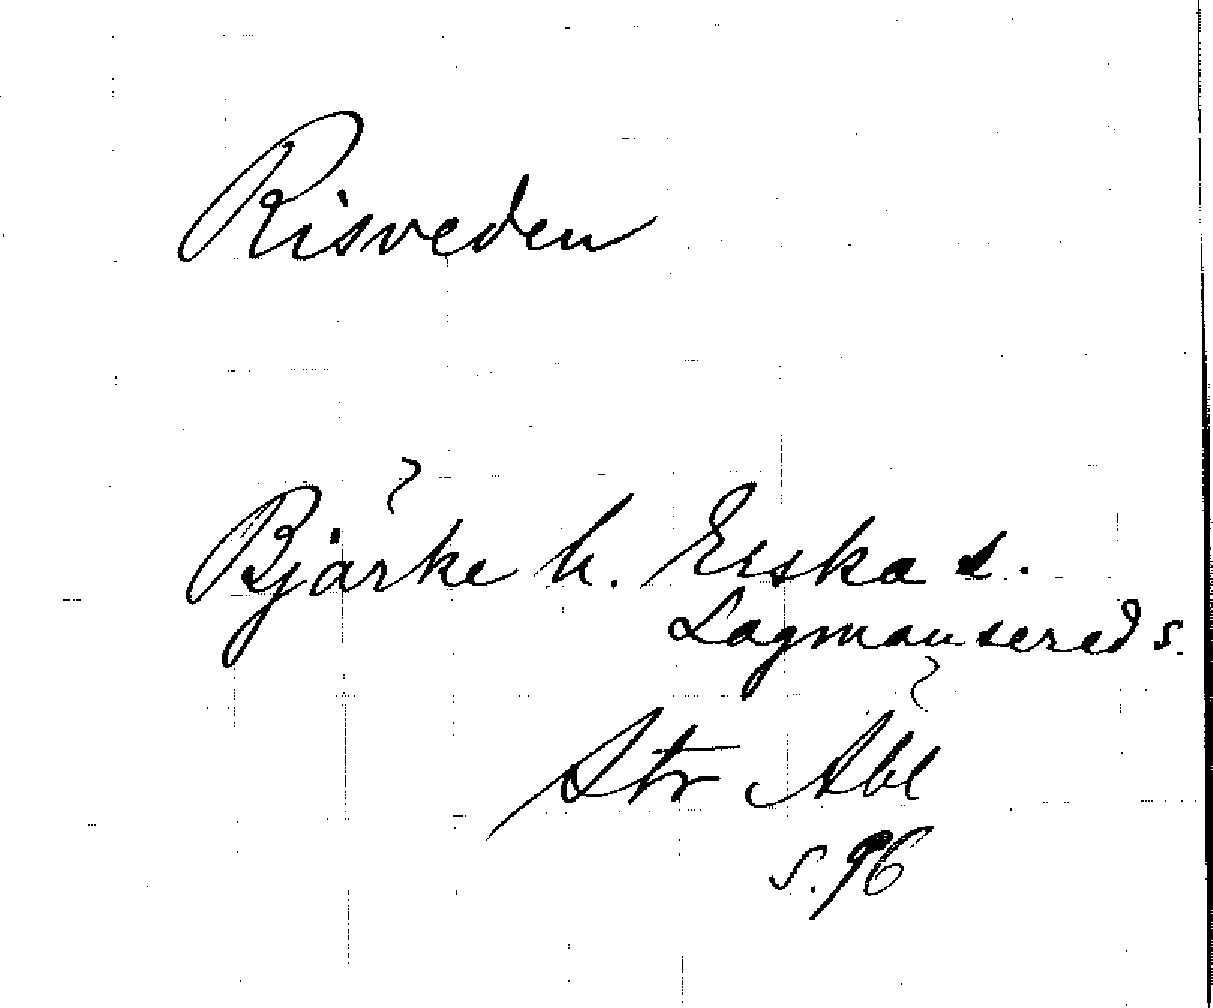 Risveden
Bjärke h. Erska s.
Lagmansereds s.
Str Abl
s. 96